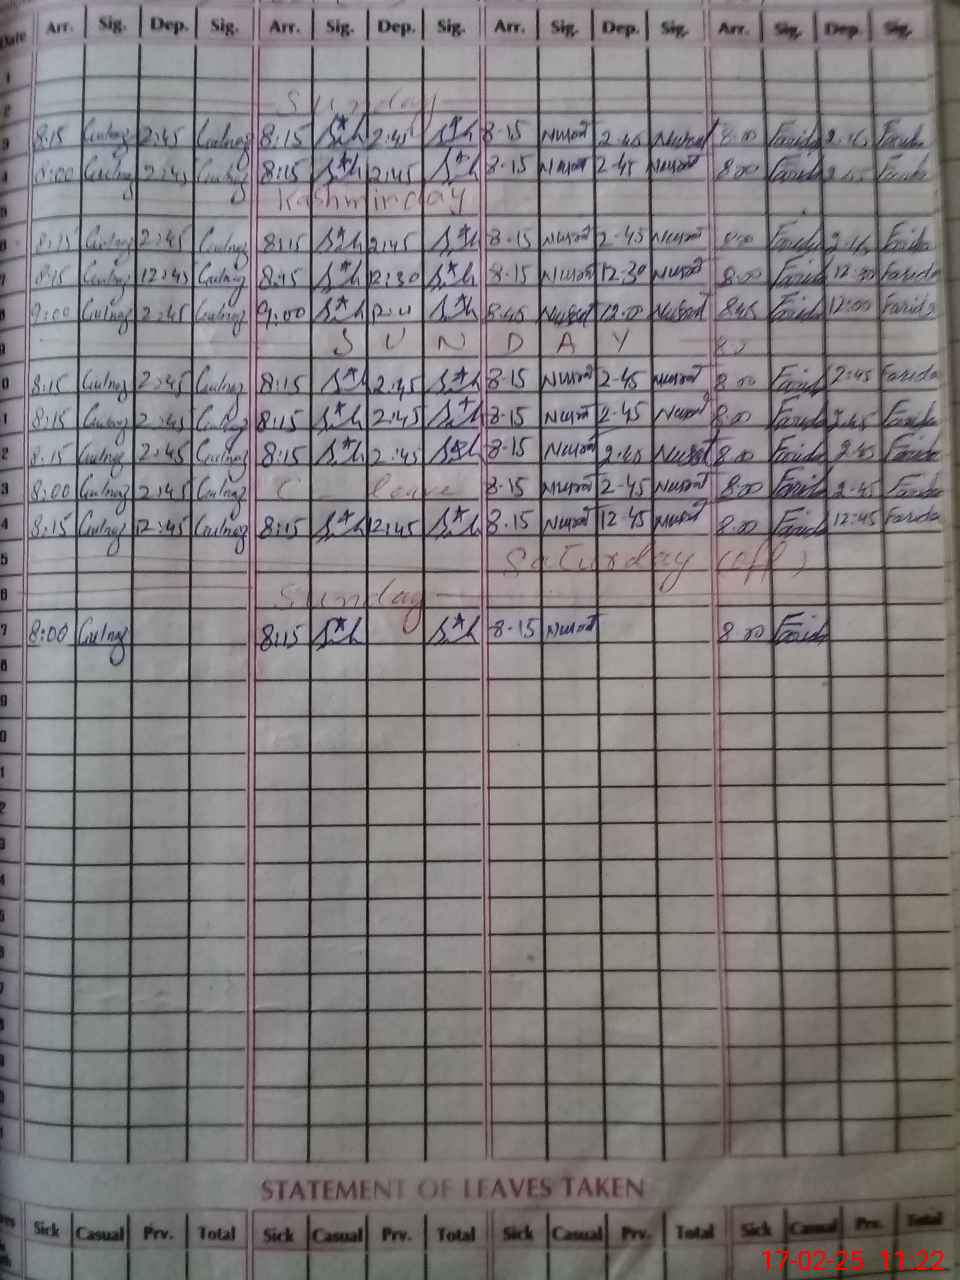 Date Arr. Sig. Dep. Sig. Arr. Sig. Dep. Sig. Arr. Sig. Dep. Sig. Arr. Sig. Dep. Sig.
1
2 Sunday
3 8:15 Gulnaz 2:45 Gulnaz 8:15 2:45 8-15 Nusrat 2-40 Nusrat 8:00 Farida Farida
4 8:00 Gulnaz 2:45 Gulnaz 8:15 2:45 8-15 Nusrat 2-45 Nusrat 8:00 Farida 2:45 Farida
5 Kashmir day
6 8:15 Gulnaz 2:45 Gulnaz 8:15 2:45 8-15 Nusrat 2-45 Nusrat Farida Farida
7 8:15 Gulnaz 12:45 Gulnaz 8:15 12:30 8-15 Nusrat 12-30 Nusrat 8:00 Farida 12:30 Farida
8 9:00 Gulnaz 2:45 Gulnaz 9:00 8:45 Nusrat 12:00 Nusrat 8:45 Farida 12:00 Farida
9 S U N D A Y
0 8:15 Gulnaz 2:45 Gulnaz 8:15 2:45 8-15 Nusrat 2-45 Nusrat 8:00 Farida 2:45 Farida
1 8:15 Gulnaz 2:45 Gulnaz 8:15 2:45 8-15 Nusrat 2-45 Nusrat 8:00 Farida 2:45 Farida
2 8:15 Gulnaz 2:45 Gulnaz 8:15 2:45 8-15 Nusrat 2-40 Nusrat 8:00 Farida Farida
3 8:00 Gulnaz 2:45 Gulnaz C - leave 8-15 Nusrat 2-45 Nusrat 8:00 Farida 2-45 Farida
4 8:15 Gulnaz 12:45 Gulnaz 8:15 12:45 8-15 Nusrat 12-45 Nusrat 8:00 Farida 12:45 Farida
5 Saturday (off)
6 Sunday
7 8:00 Gulnaz 8:15 8-15 Nusrat 8:00 Farida
8
9
0
1
2
3
4
STATEMENT OF LEAVES TAKEN
Sick Casual Prv. Total Sick Casual Prv. Total Sick Casual Prv. Total Sick Casual Prv. Total
17-02-25 11:22